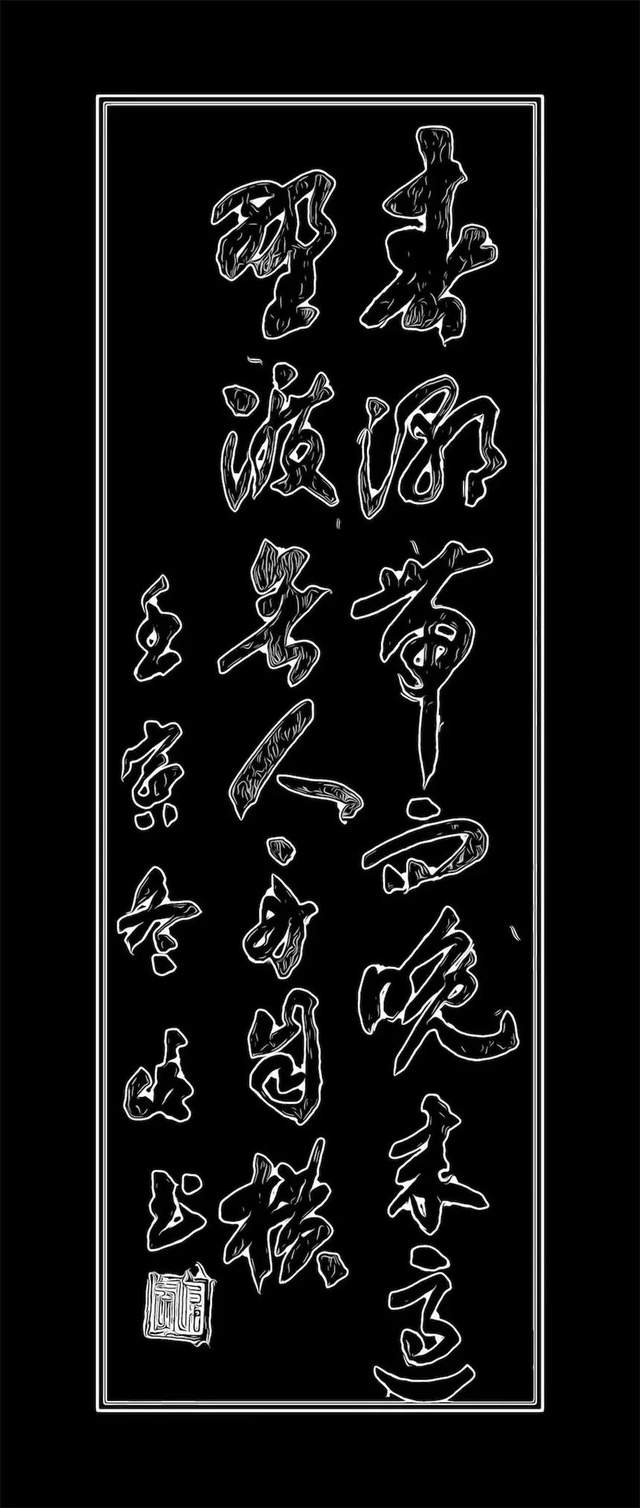 春潮带雨晚来急
野渡無人舟自横
壬寅冬书